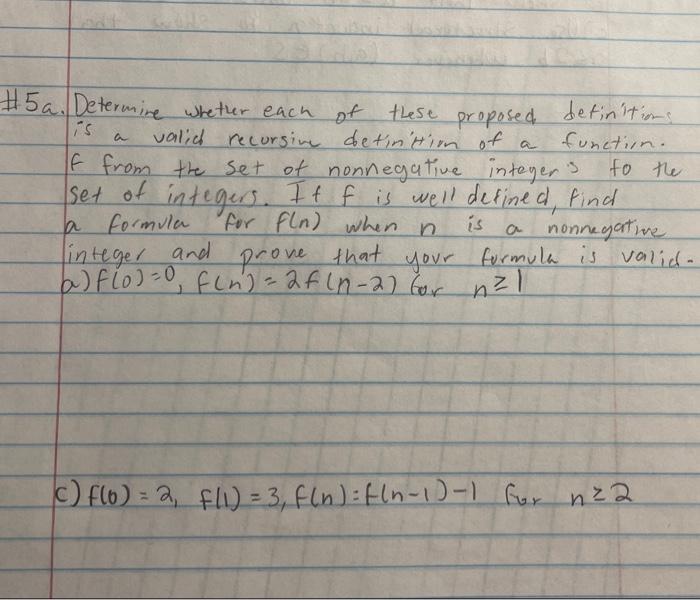 #5a. Determine whether each of these proposed definitions
is a valid recursive definition of a function.
f from the set of nonnegative integers to the
set of integers. If f is well defined, find
a formula for f(n) when n is a nonnegative
integer and prove that your formula is valid.
a) f(0)=0, f(n) = 2f(n-2) for n≥1
c) f(0) = 2, f(1) = 3, f(n) = f(n-1)-1 for n≥2